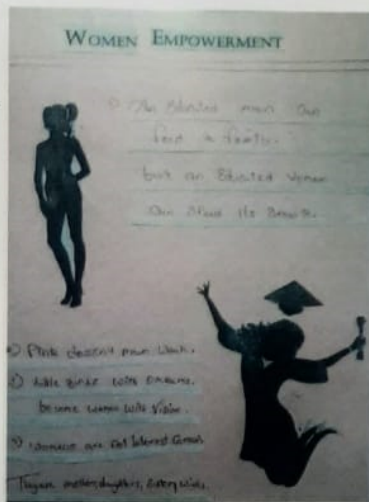 WOMEN EMPOWERMENT
1) An Educated man Can
feed a family.
but an Educated Women
Can
2) Pink doesn't mean Weak.
3) little Girls with Dreams.
become women with Vision.
women are not
They are mothers, daughters, Sisters, wives.